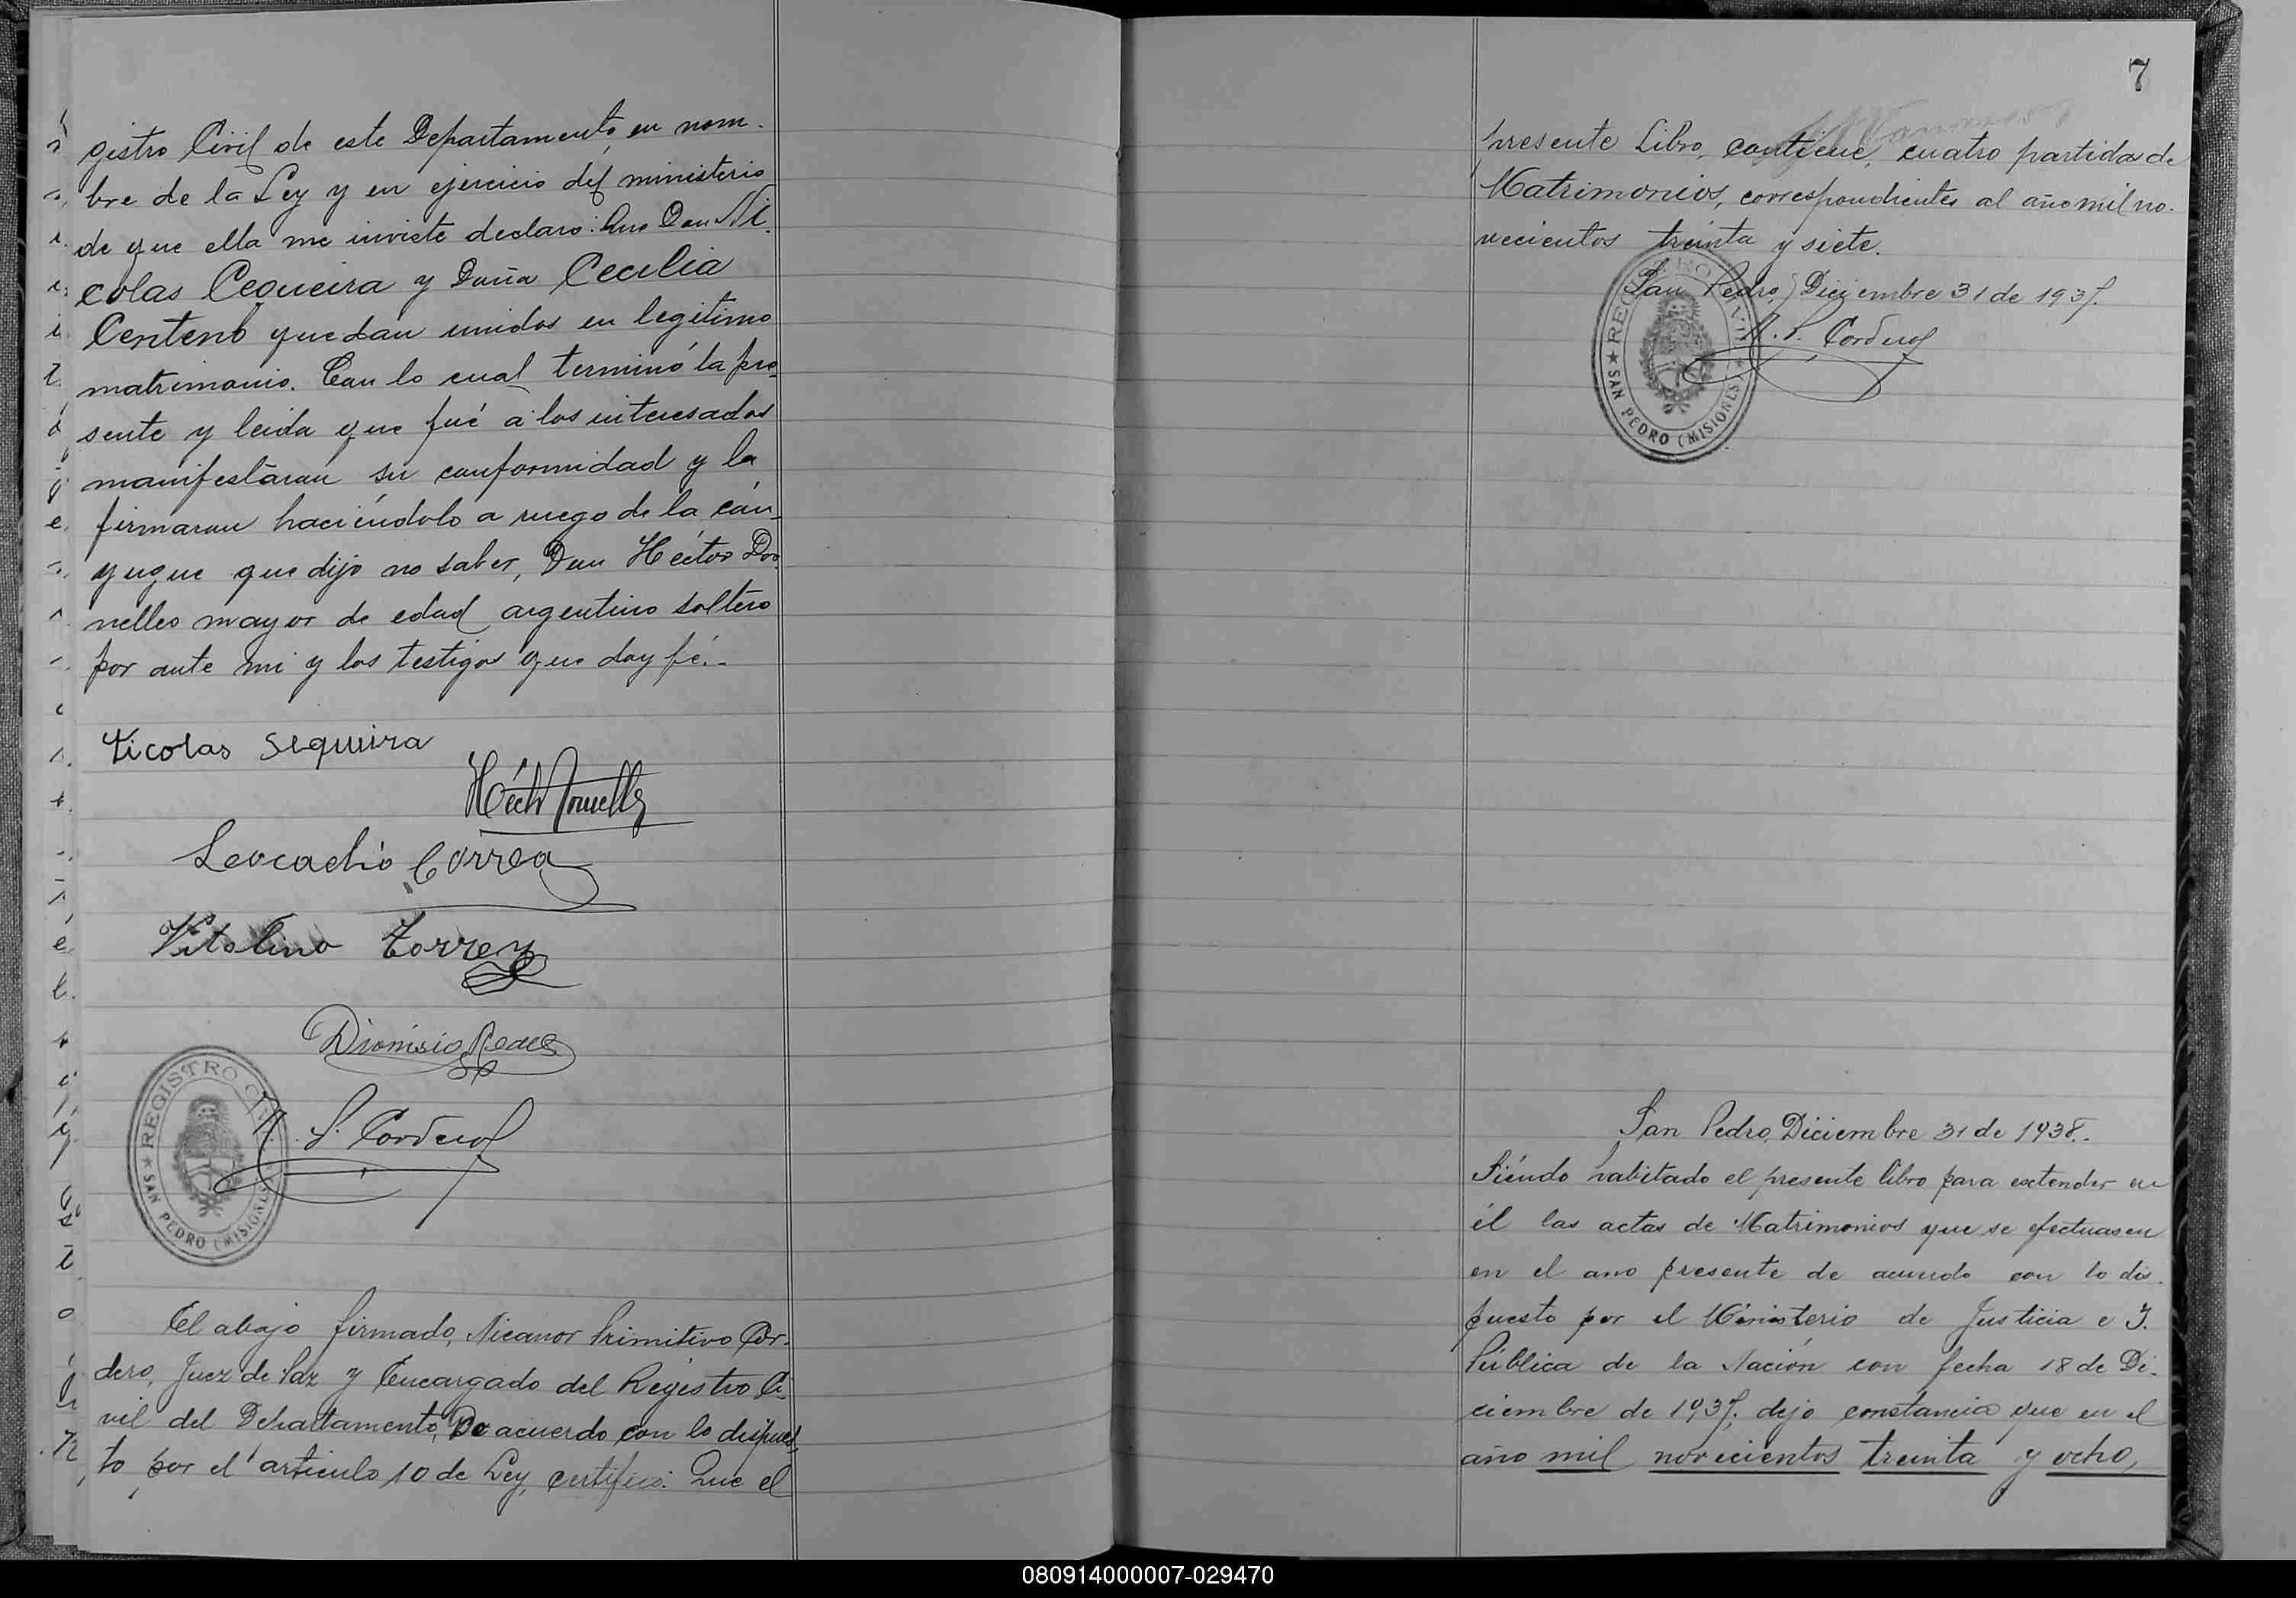 gistro Civil de este Departamento, en nom-
bre de la Ley y en ejercicio del ministerio
de que ella me inviste declaro: Que Don Ni-
colas Cequeira y Doña Cecilia
Centeno quedan unidos en legitimo
matrimonio. Con lo cual terminó la pre-
sente y leida que fué a los interesados
manifestaron su conformidad y la
firmaron haciéndolo a ruego de la cón-
yugue que dijo no saber, Don Héctor Dor
nelles mayor de edad argentino soltero
por ante mi y los testigos que doy fé.-
Nicolas Sequeira
Héctor Dornelles
Leocadio Correa
Vitalino Torres
Dionisio
N. P. Cordero
REGISTRO CIVIL
SAN PEDRO (MISIONES)
El abajo firmado, Nicanor Primitivo Cor-
dero, Juez de Paz y Encargado del Registro Ci-
vil del Departamento, De acuerdo con lo dispues-
to por el artículo 10 de Ley, certifico: Que el
7
presente Libro, contiene, cuatro partidas de
Matrimonios, correspondientes al año mil no-
vecientos treinta y siete.
San Pedro, Diciembre 31 de 1937.
N. P. Cordero
REGISTRO CIVIL
SAN PEDRO (MISIONES)
San Pedro, Diciembre 31 de 1938.-
Siéndo habitado el presente libro para extender en
él las actas de Matrimonios que se efectuasen
en el ano presente de acuerdo con lo dis-
puesto por el Ministerio de Justicia e I.
Pública de la Nación con fecha 18 de Di-
ciembre de 1937, dejo constancia que en el
año mil novecientos treinta y ocho,
080914000007-029470